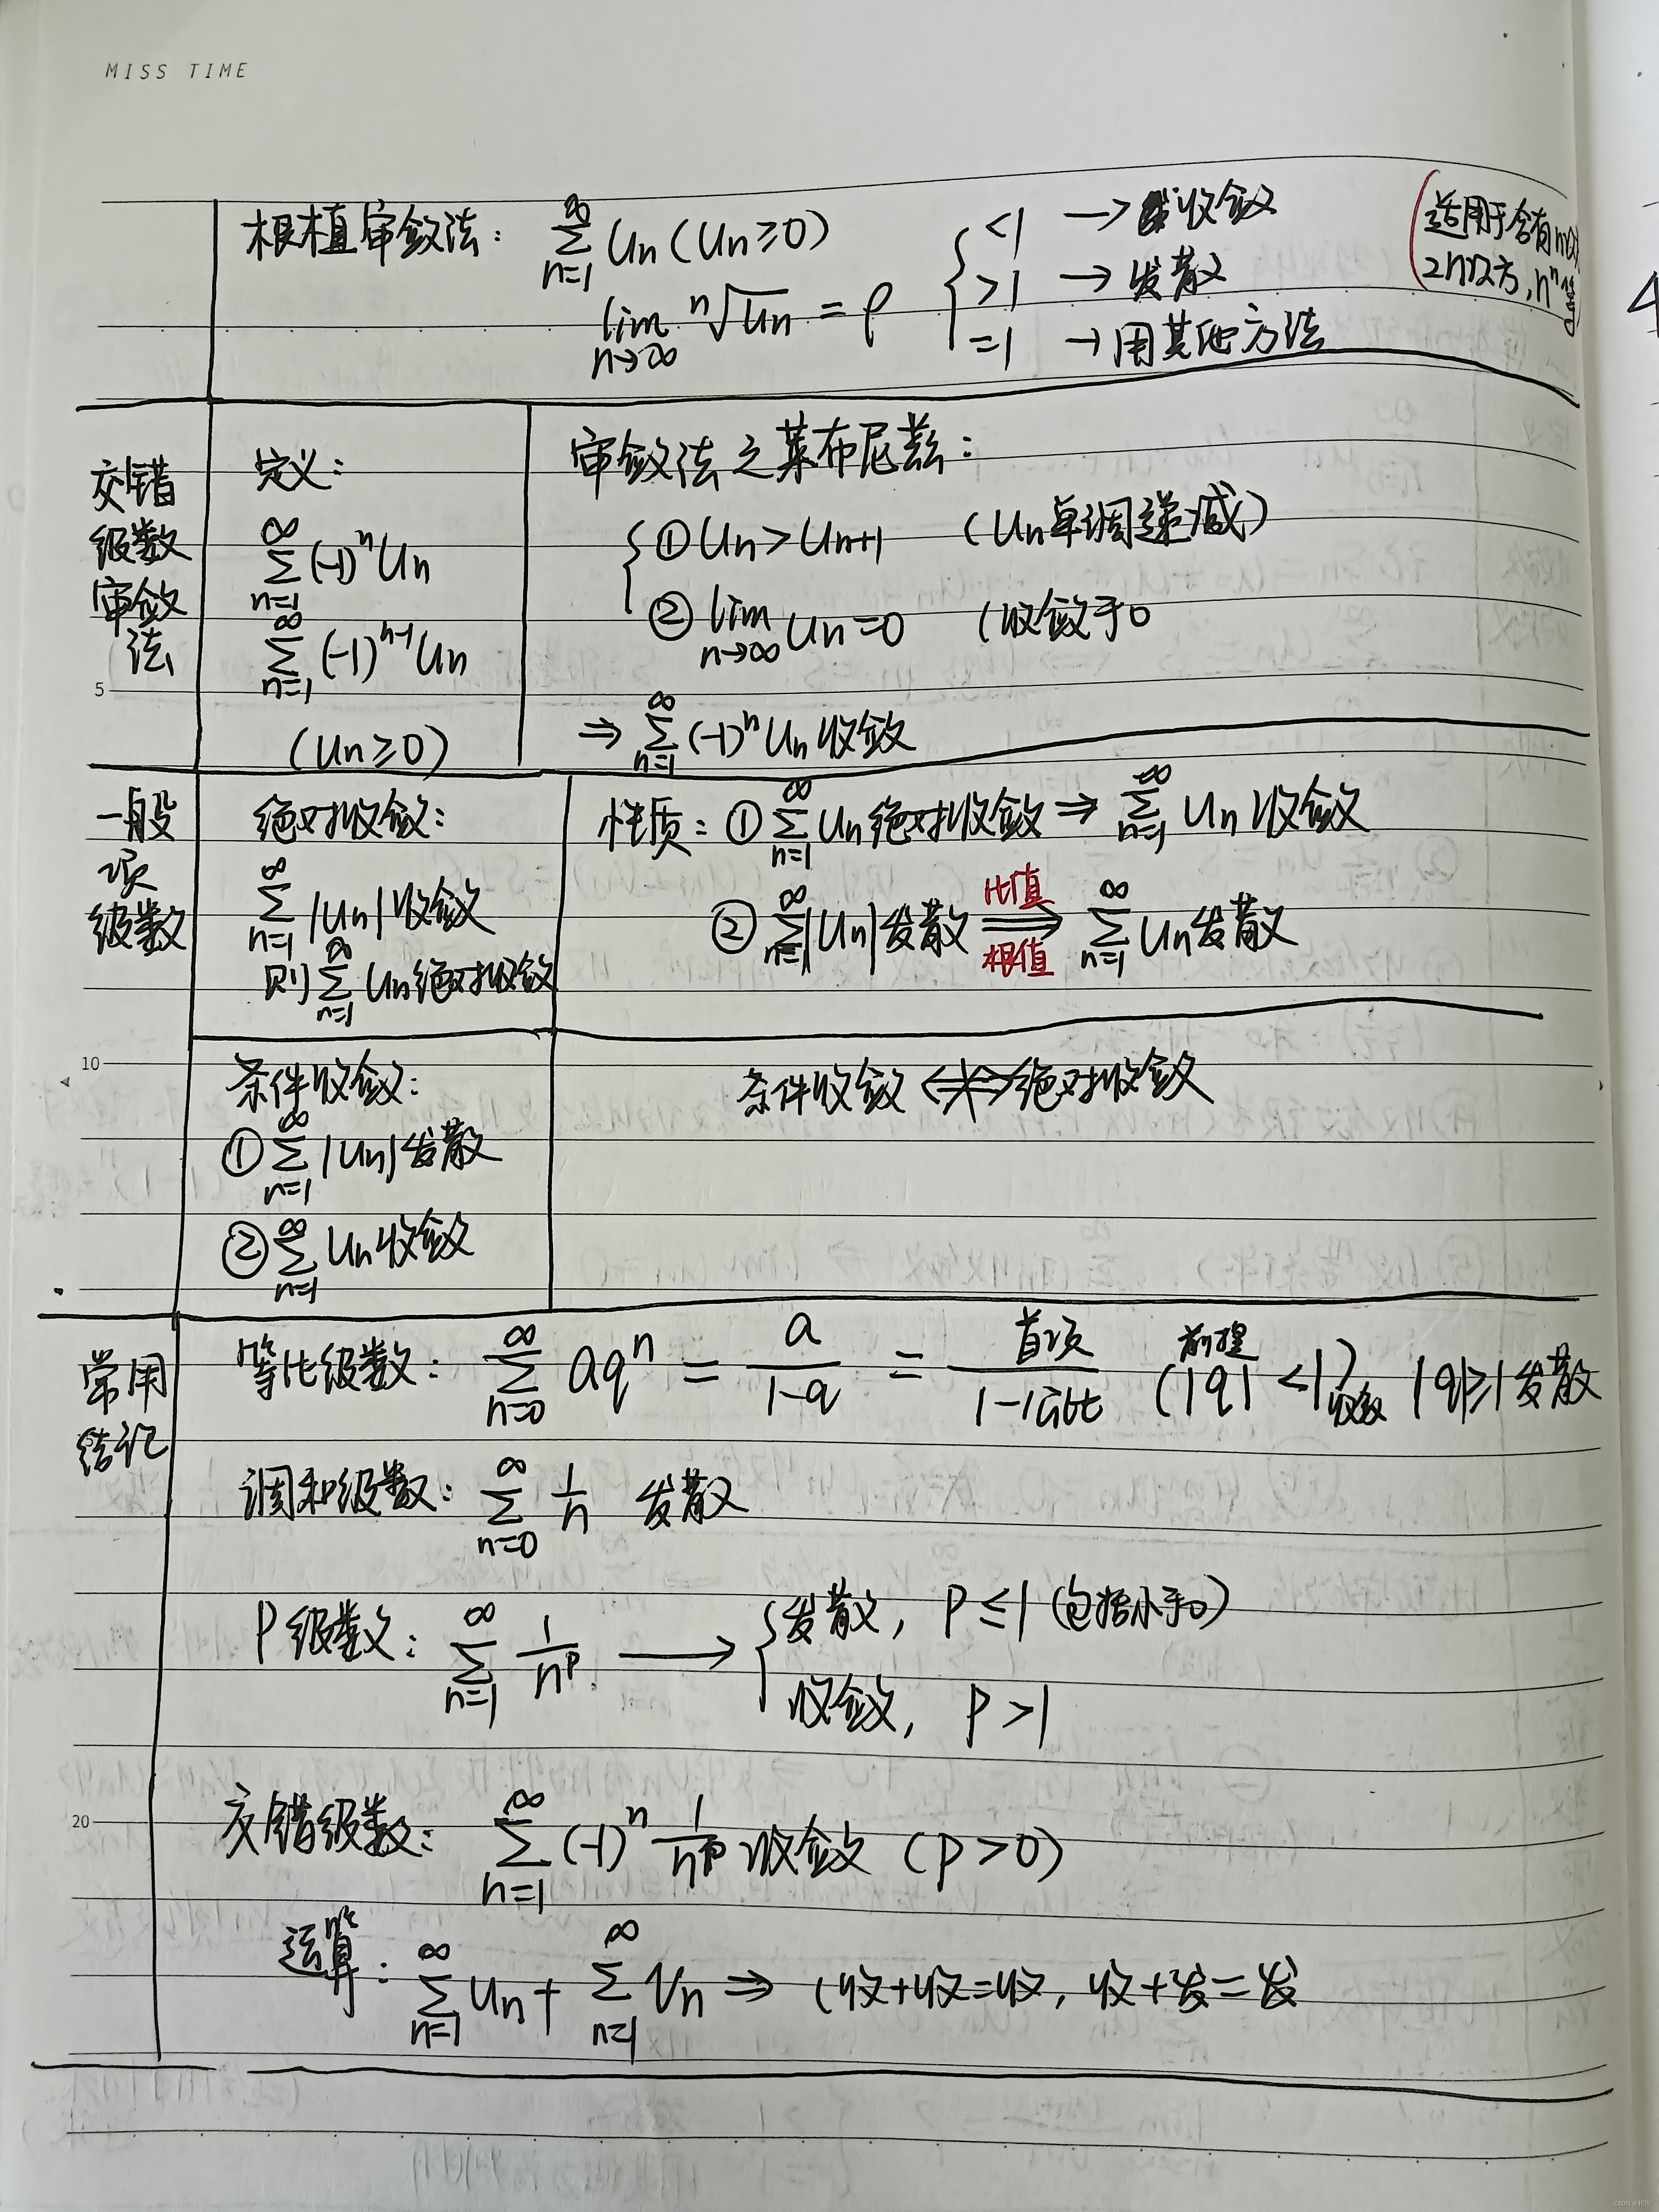 MISS TIME
根植审敛法: ∑_{n=1}^{∞} Un (Un≥0)
lim_{n→∞} ⁿ√Un = ρ { <1 → 收敛
>1 → 发散
=1 → 用其他方法
(适用于含有n次
2n次方, nⁿ等
交错
级数
审敛
法
定义:
∑_{n=1}^{∞} (-1)ⁿ Un
∑_{n=1}^{∞} (-1)ⁿ⁻¹ Un
(Un≥0)
审敛法之莱布尼兹:
{ ① Un > Un+1 (Un单调递减)
② lim_{n→∞} Un = 0 (收敛于0
⇒ ∑_{n=1}^{∞} (-1)ⁿ Un 收敛
5
一般
项
级数
绝对收敛:
∑_{n=1}^{∞} |Un| 收敛
则 ∑_{n=1}^{∞} Un 绝对收敛
性质: ① ∑_{n=1}^{∞} Un 绝对收敛 ⇒ ∑_{n=1}^{∞} Un 收敛
② ∑_{n=1}^{∞} |Un| 发散 ⇒ ∑_{n=1}^{∞} Un 发散
比值
根值
10
条件收敛:
① ∑_{n=1}^{∞} |Un| 发散
② ∑_{n=1}^{∞} Un 收敛
条件收敛 ⇎ 绝对收敛
常用
结论
等比级数: ∑_{n=0}^{∞} aqⁿ = a/(1-q) = 首项/(1-公比) (前提 |q| <1) 收敛 |q|≥1 发散
调和级数: ∑_{n=0}^{∞} 1/n 发散
P级数: ∑_{n=1}^{∞} 1/nᵖ → { 发散, P≤1 (包括小于0)
收敛, P>1
20
交错级数: ∑_{n=1}^{∞} (-1)ⁿ 1/nᵖ 收敛 (P>0)
运算: ∑_{n=1}^{∞} Un + ∑_{n=1}^{∞} Vn ⇒ (收+收=收, 收+发=发